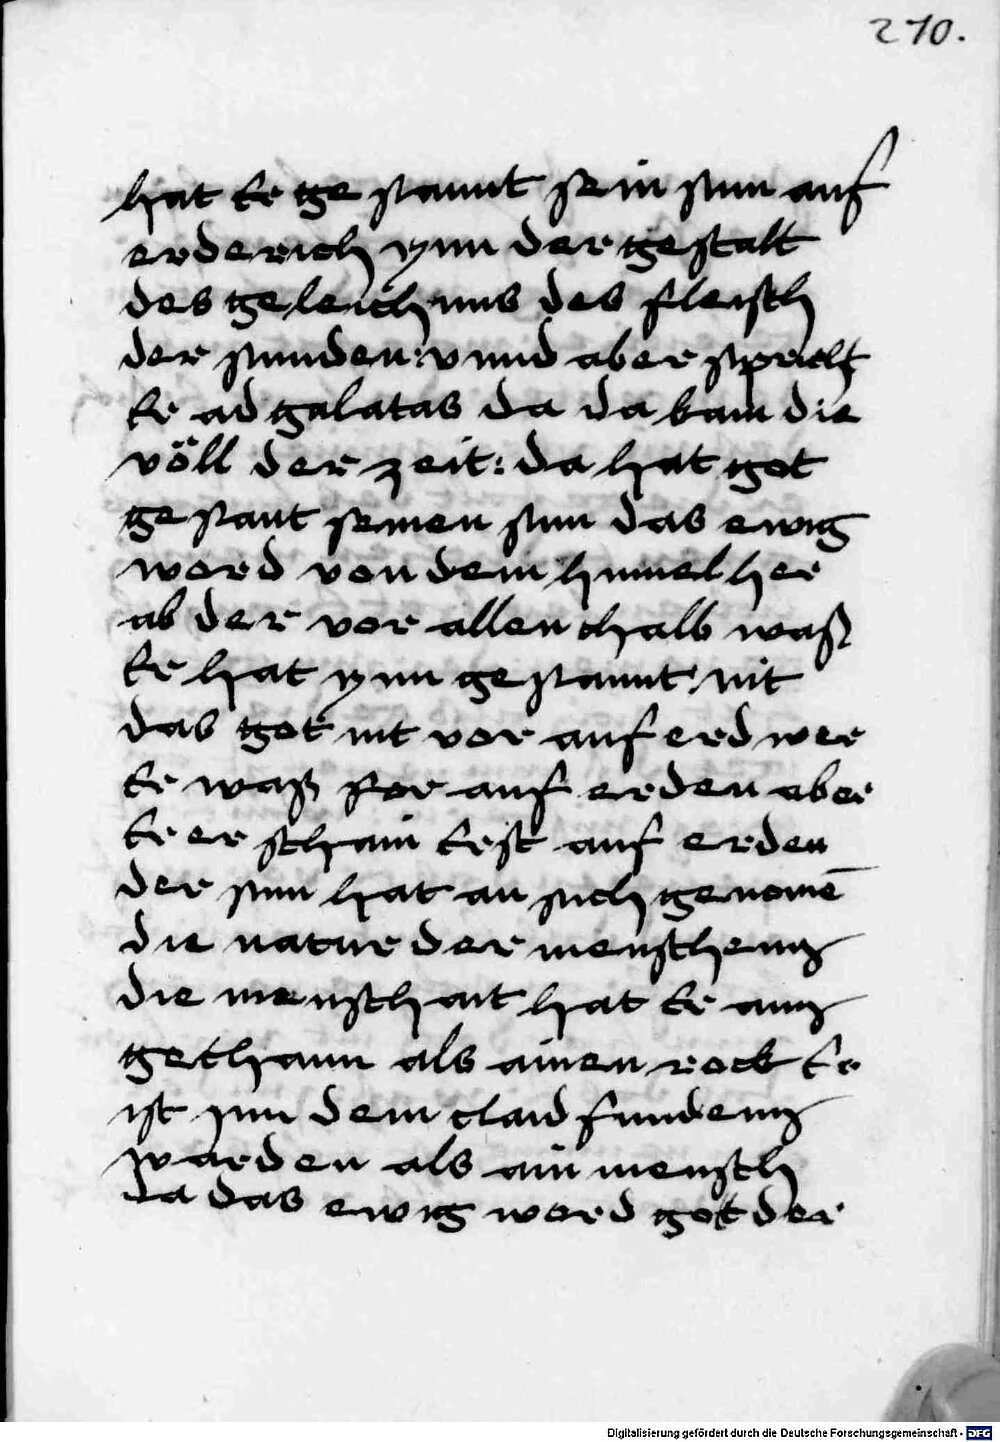 270.
hat Er ge stannt sein sunn auf
erderich ynn der gestalt
des geleichnus des fleisch
der sunnden: vnnd aber spricht
Er ad galatas da da kam die
völl der zeit: da hat got
ge sant seinen sun das ewig
word von dem himel her
ab der vor allenthalb waß
Er hat ynn ge sannt nit
das got nit vor auf erd wer
Er waß for auf erden aber
Er er schain Erst auf erden
der sun hat an such genomē
die natur der menschenn
die menschait hat Er ann
gethann als ainen rock Er
ist ynn dem claid fundenn
warden als ain mensch
da das ewig word got der
Digitalisierung gefördert durch die Deutsche Forschungsgemeinschaft - DFG